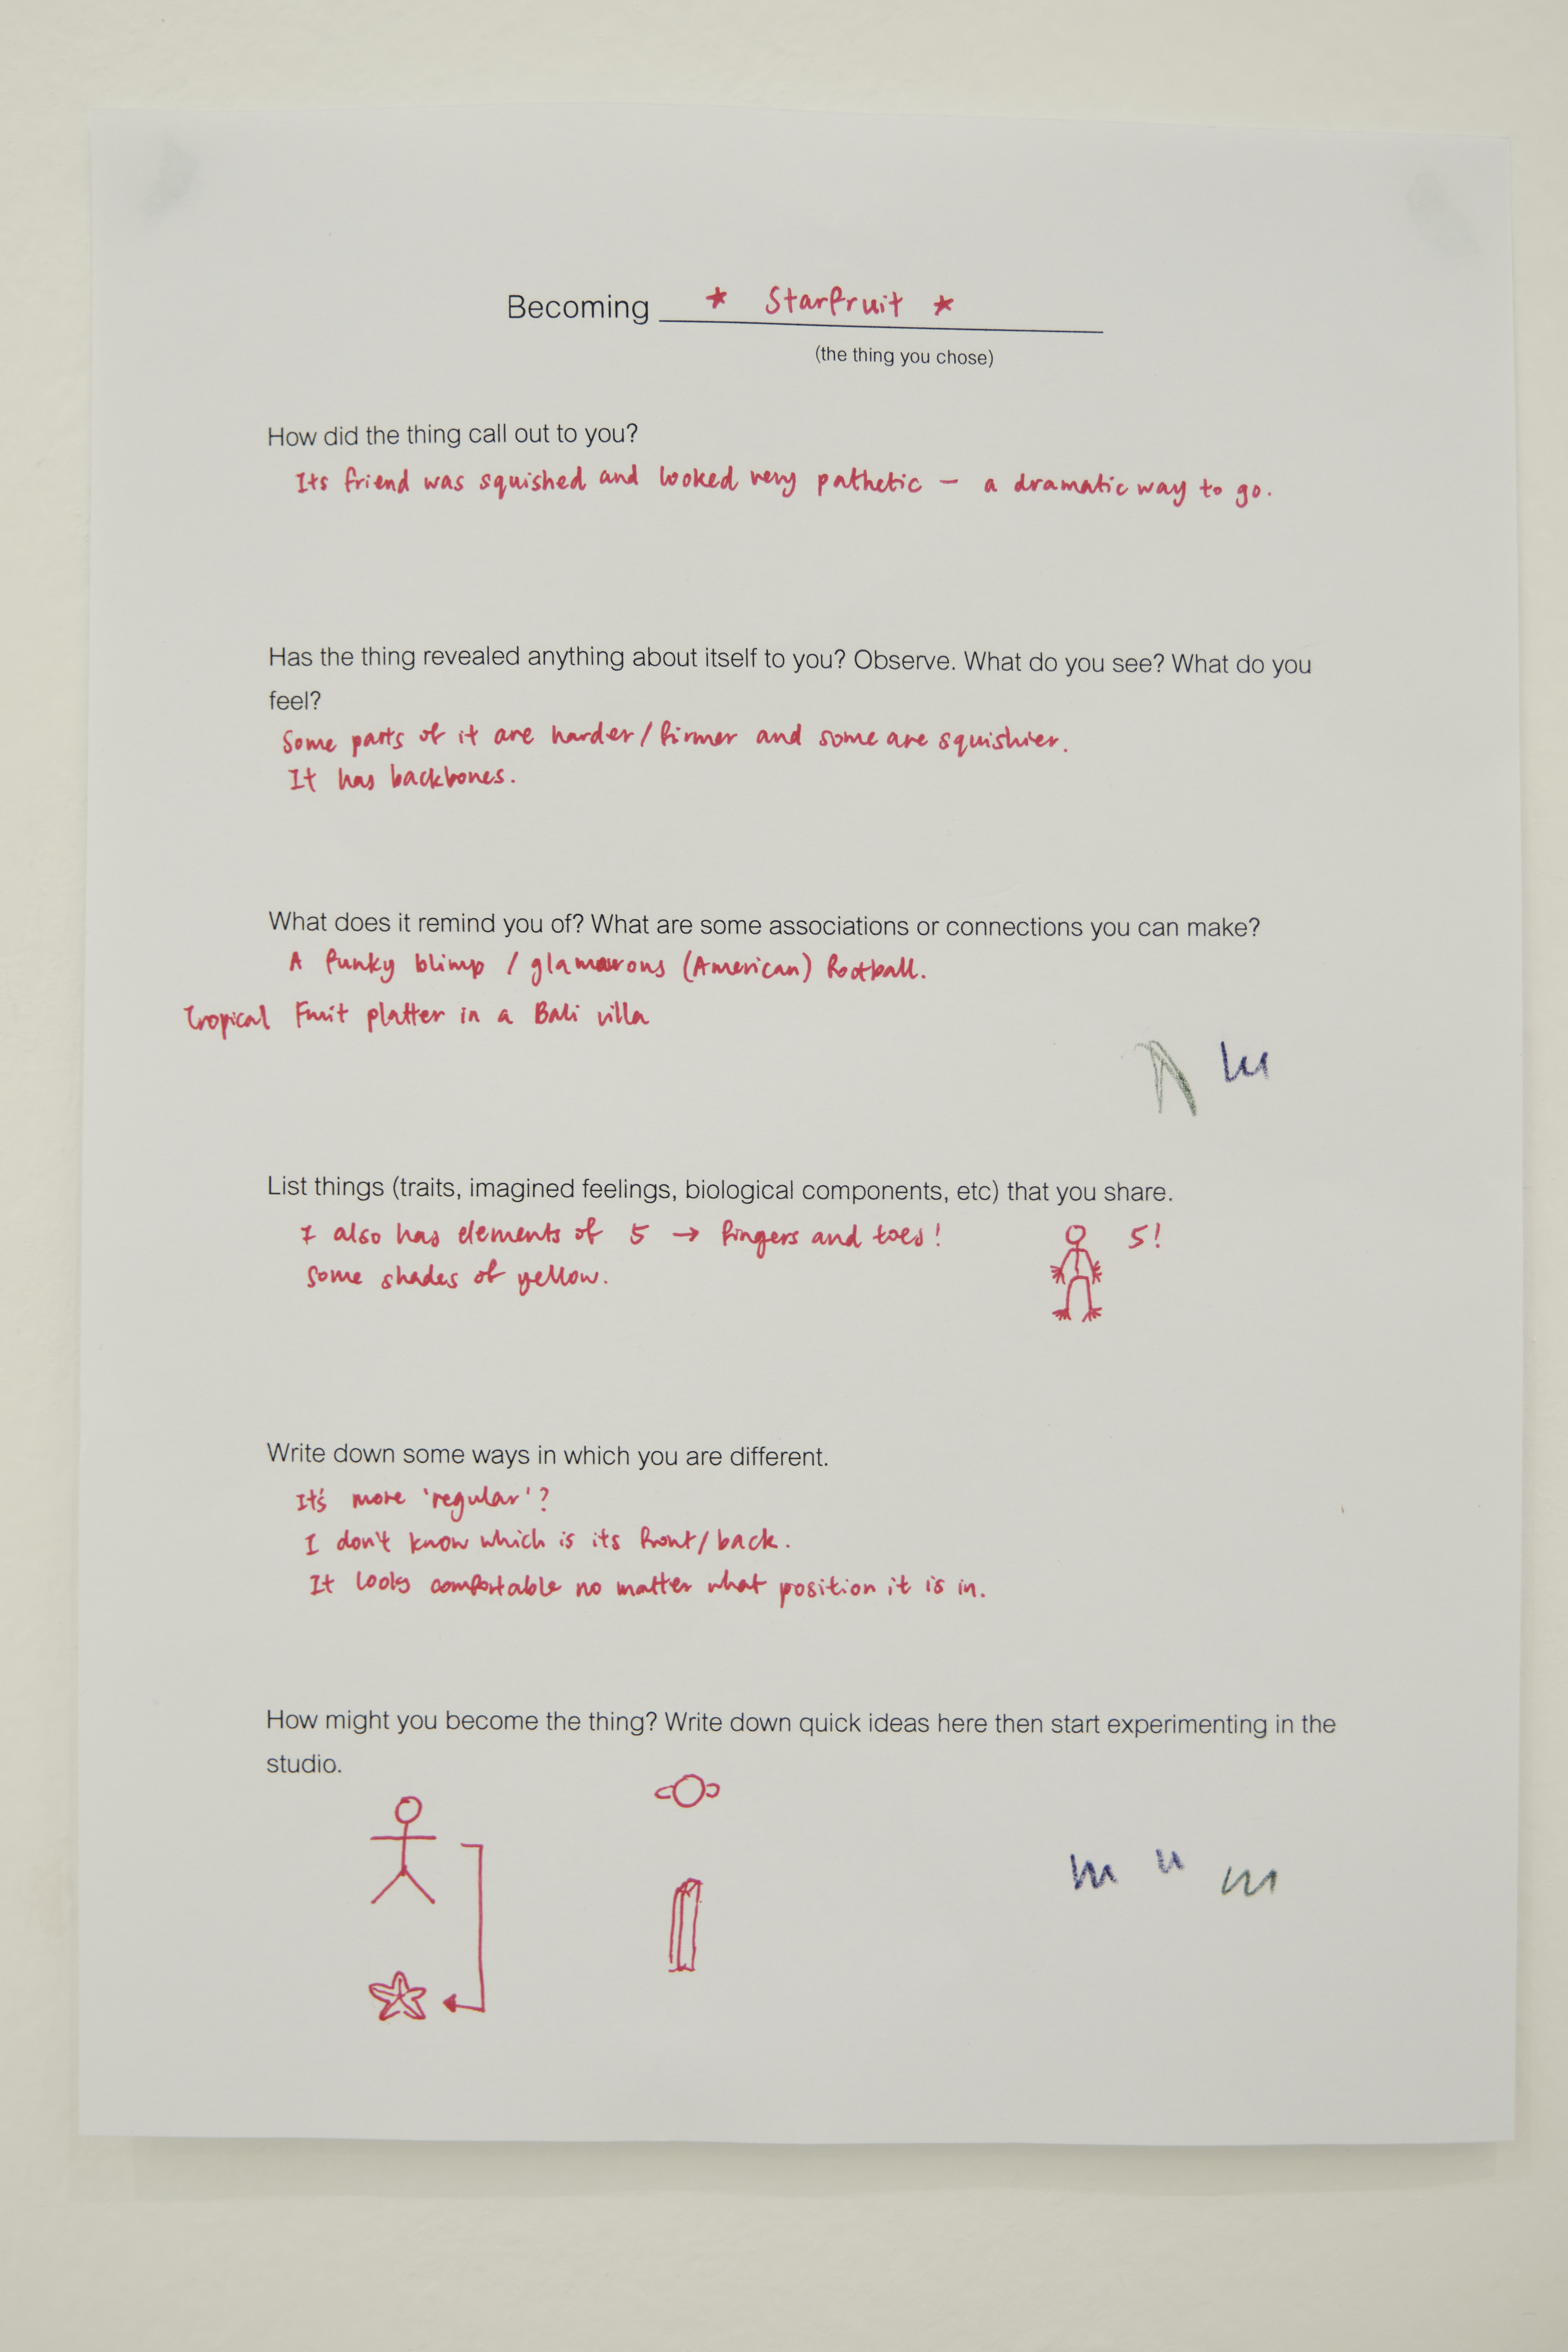 Becoming * Starfruit *
(the thing you chose)
How did the thing call out to you?
Its friend was squished and looked very pathetic — a dramatic way to go.
Has the thing revealed anything about itself to you? Observe. What do you see? What do you
feel?
Some parts of it are harder/firmer and some are squishier.
It has backbones.
What does it remind you of? What are some associations or connections you can make?
A funky blimp / glamourous (American) football.
Tropical Fruit platter in a Bali villa
List things (traits, imagined feelings, biological components, etc) that you share.
I also has elements of 5 → fingers and toes!
5!
Some shades of yellow.
Write down some ways in which you are different.
It's more 'regular'?
I don't know which is its front/back.
It looks comfortable no matter what position it is in.
How might you become the thing? Write down quick ideas here then start experimenting in the
studio.